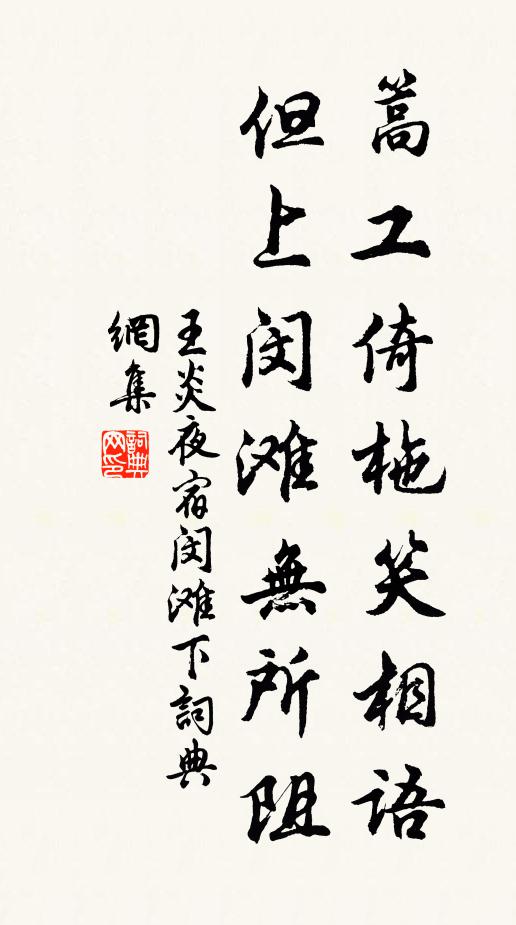 篙工倚柂笑相語
但上闵滩無所阻
王炎夜宿闵滩下詞典
網集
詞典
网印